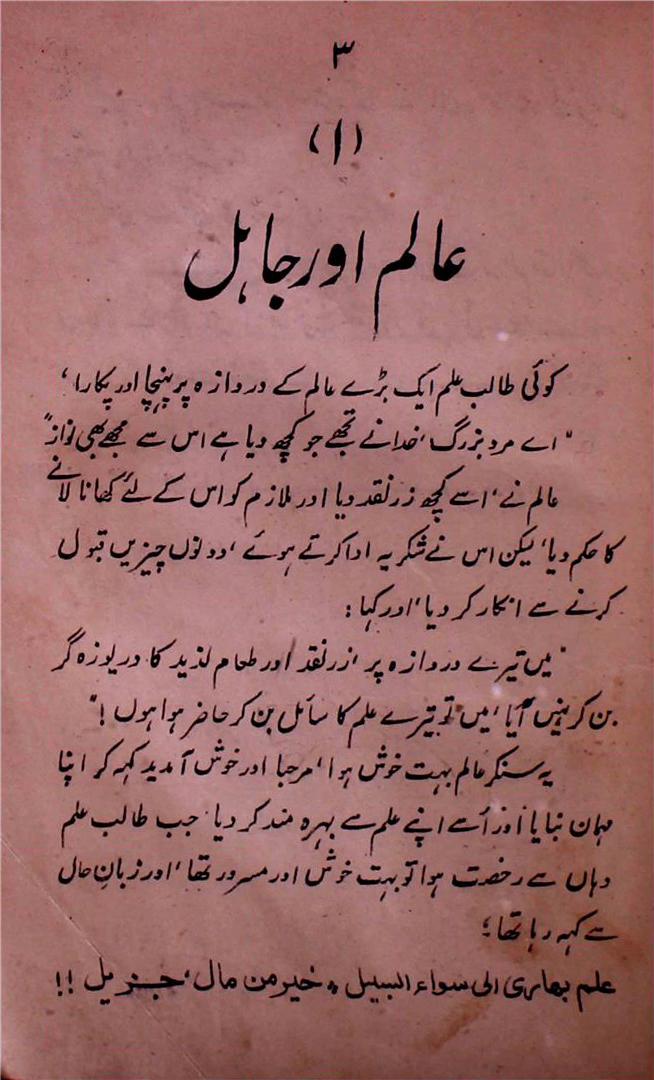 ۳
(۱)
عالم اور جاہل
کوئی طالب علم ایک بڑے عالم کے دروازہ پر پہنچا اور پکارا،
"اے مرد بزرگ، خدا نے تجھے جو کچھ دیا ہے اس سے مجھے بھی نواز"
عالم نے، اسے کچھ زر نقد دیا اور ملازم کو اس کے لئے کھانا لانے
کا حکم دیا، لیکن اس نے شکریہ ادا کرتے ہوئے، دونوں چیزیں قبول
کرنے سے انکار کر دیا، اور کہا :
"میں تیرے دروازہ پر، زر نقد اور طعام لذید کا دریوزہ گر
بن کر نہیں آیا، میں تو تیرے علم کا سائل بن کر حاضر ہوا ہوں !"
یہ سنکر عالم بہت خوش ہوا، مرحبا اور خوش آمدید کہہ کر اپنا
مہمان بنایا اور اُسے اپنے علم سے بہرہ مند کر دیا، جب طالب علم
وہاں سے رخصت ہوا تو بہت خوش اور مسرور تھا، اور زبانِ حال
سے کہہ رہا تھا ؛
علم یھدی الی سواء السبیل * خیر من مال، جزیل !!